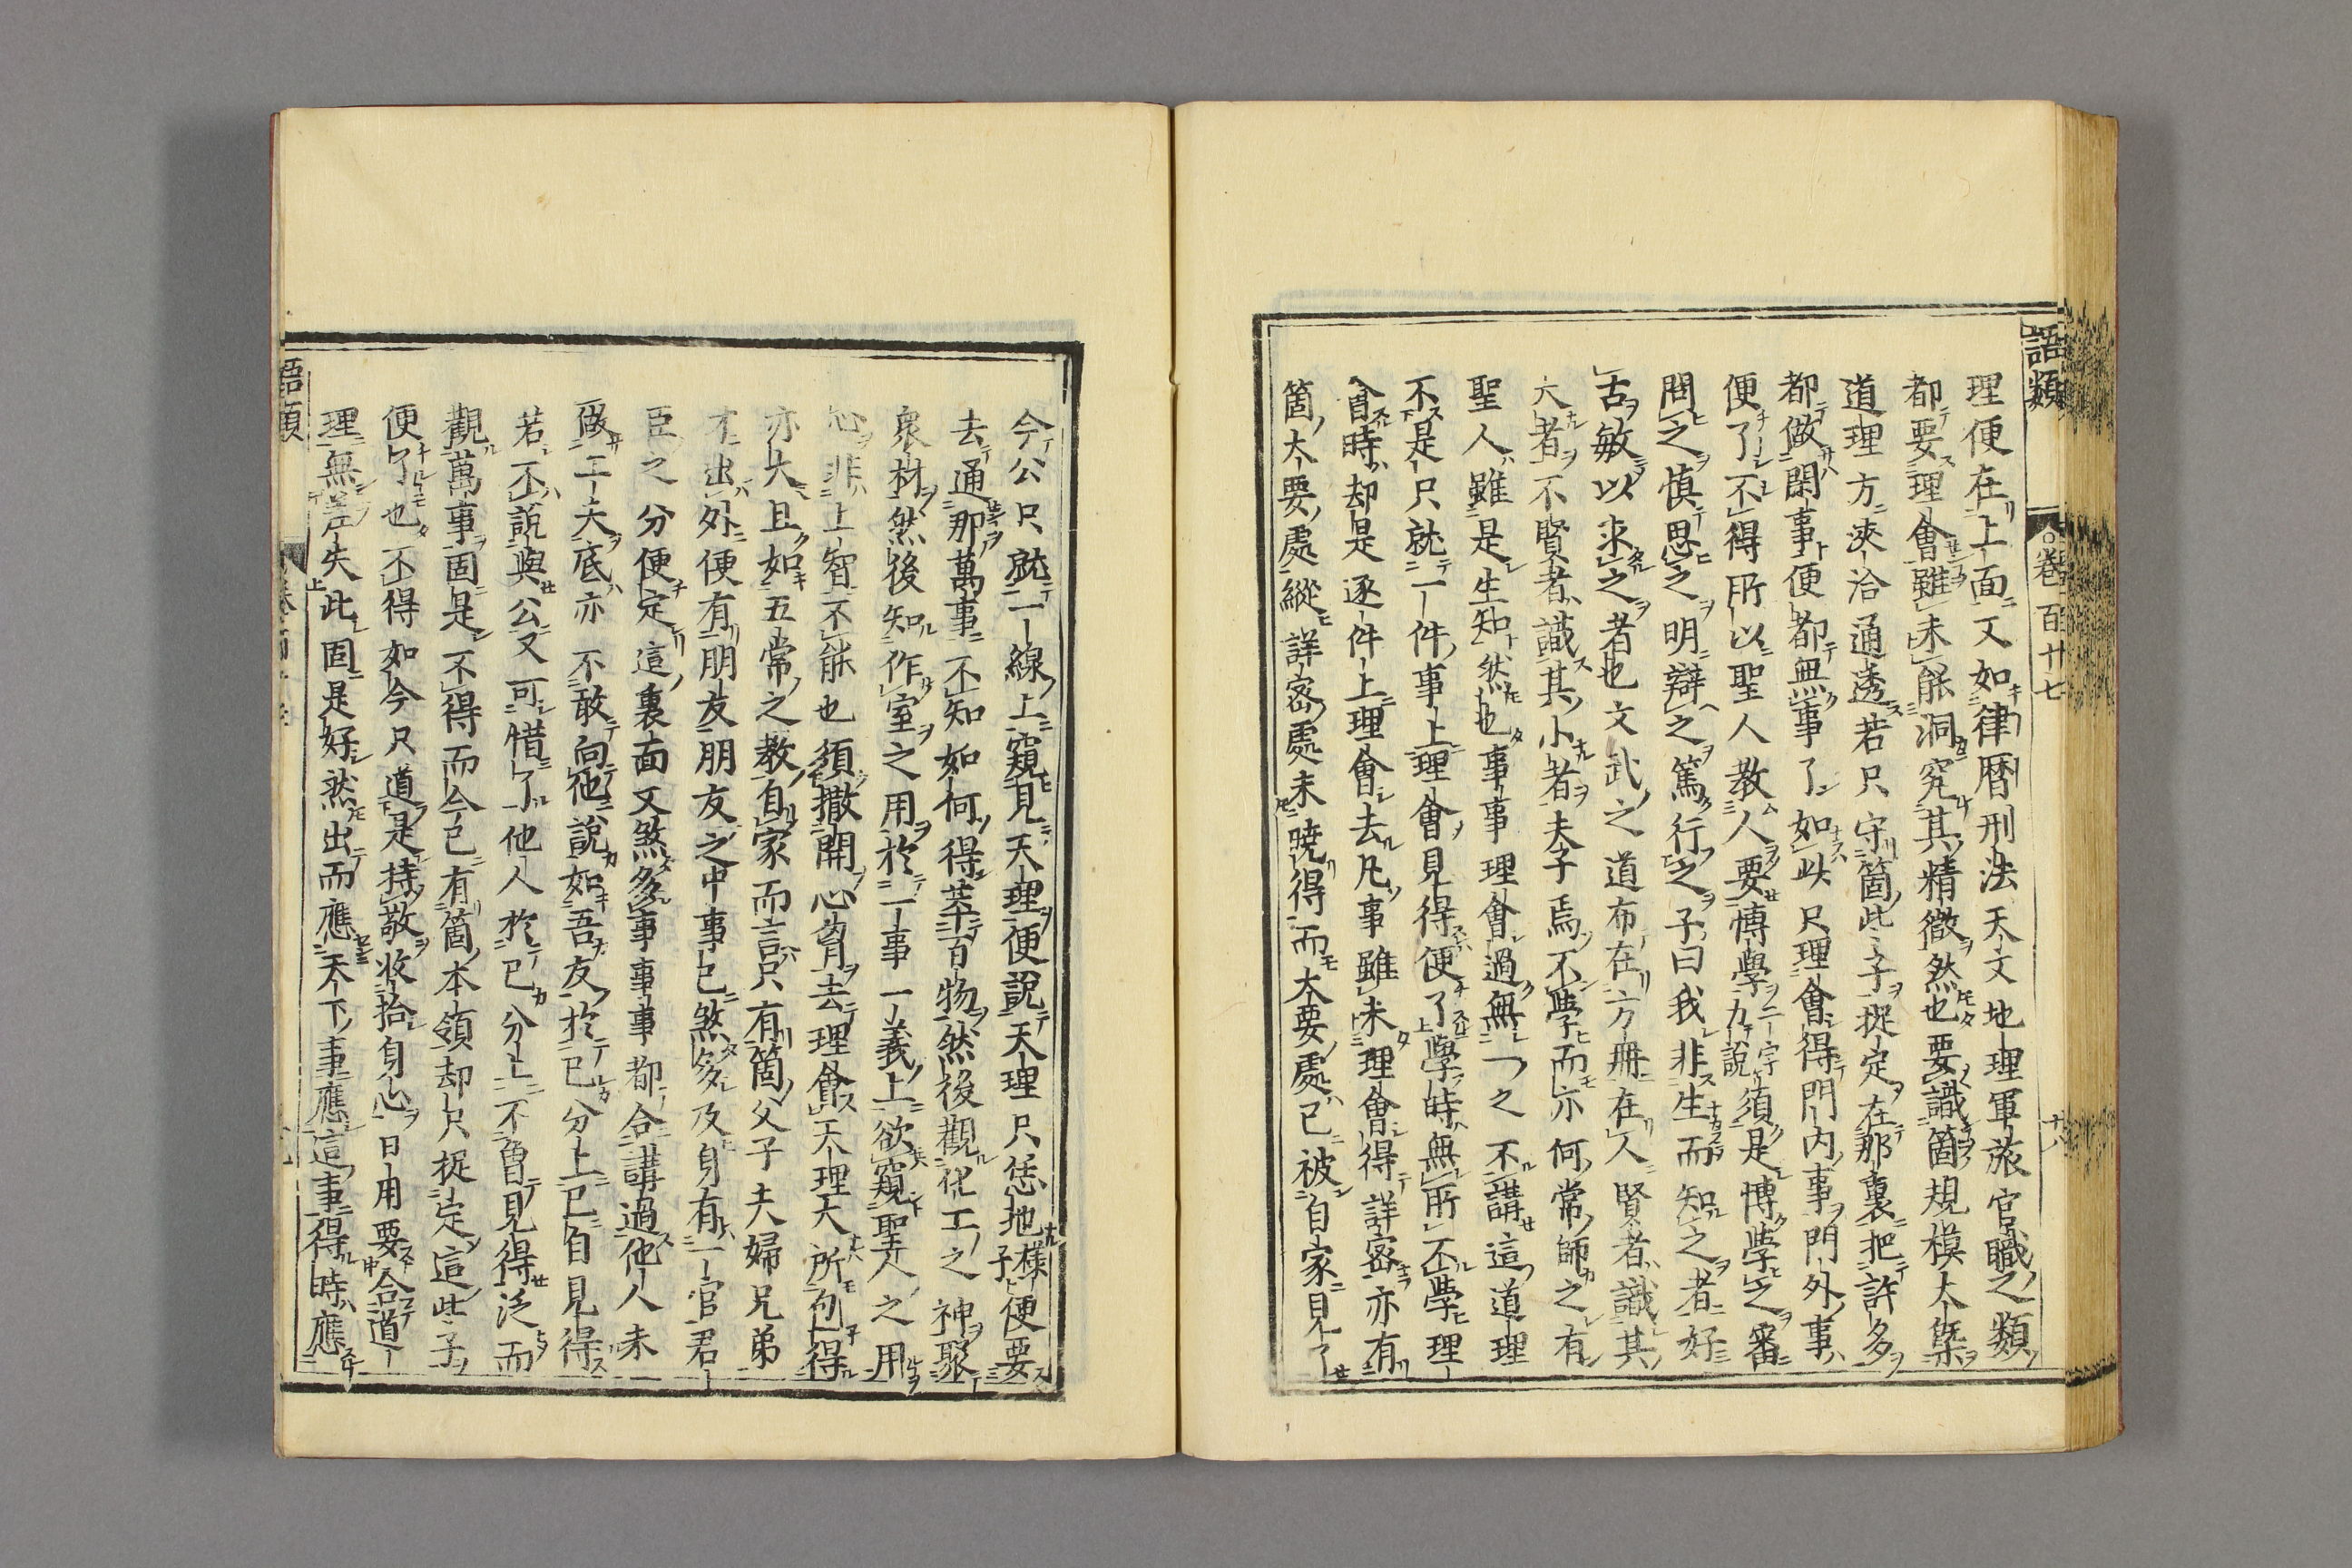 語類
卷百十七
十八
理便在上面又如律曆刑法天文地理軍旅官職之類
都要理會雖未能洞究其精微然也要識箇規模大槩
道理方浹洽通透若只守箇些子捉定在那裏把許多
都做閑事便都無事了如此只理會得門内事門外事
便了不得所以聖人教人要博學二字力説須是博學之審
問之慎思之明辯之篤行之子曰我非生而知之者好
古敏以求之者也文武之道布在方冊在人賢者識其
大者不賢者識其小者夫子焉不學而亦何常師之有
聖人雖是生知然也事事理會過無一之不講這道理
不是只就一件事上理會見得便了學時無所不學理
會時却是逐件上理會去凡事雖未理會得詳密亦有
箇大要處縱詳密處未曉得而大要處已被自家見了
今公只就一線上窺見天理便説天理只恁地樣子便要
去通那萬事不知如何得萃百物然後觀化工之神聚
衆材然後知作室之用於一事一義上欲窺聖人之用
心非上智不能也須撒開心胷去理會天理大所包得
亦大且如五常之教自家而言只有箇父子夫婦兄弟
才出外便有朋友朋友之中事已煞多及身有一官君
臣之分便定這裏面又煞多事事事都合講過他人未
做工夫底亦不敢向他說如吾友於已分上已自見得
若不説與公又可惜了他人於已分上不曾見得泛而
觀萬事固是不得而今已有箇本領却只捉定這些子
便了也不得如今只道是持敬收拾身心日用要合道
理無差失此固是好然出而應天下事應這事得時應
語類